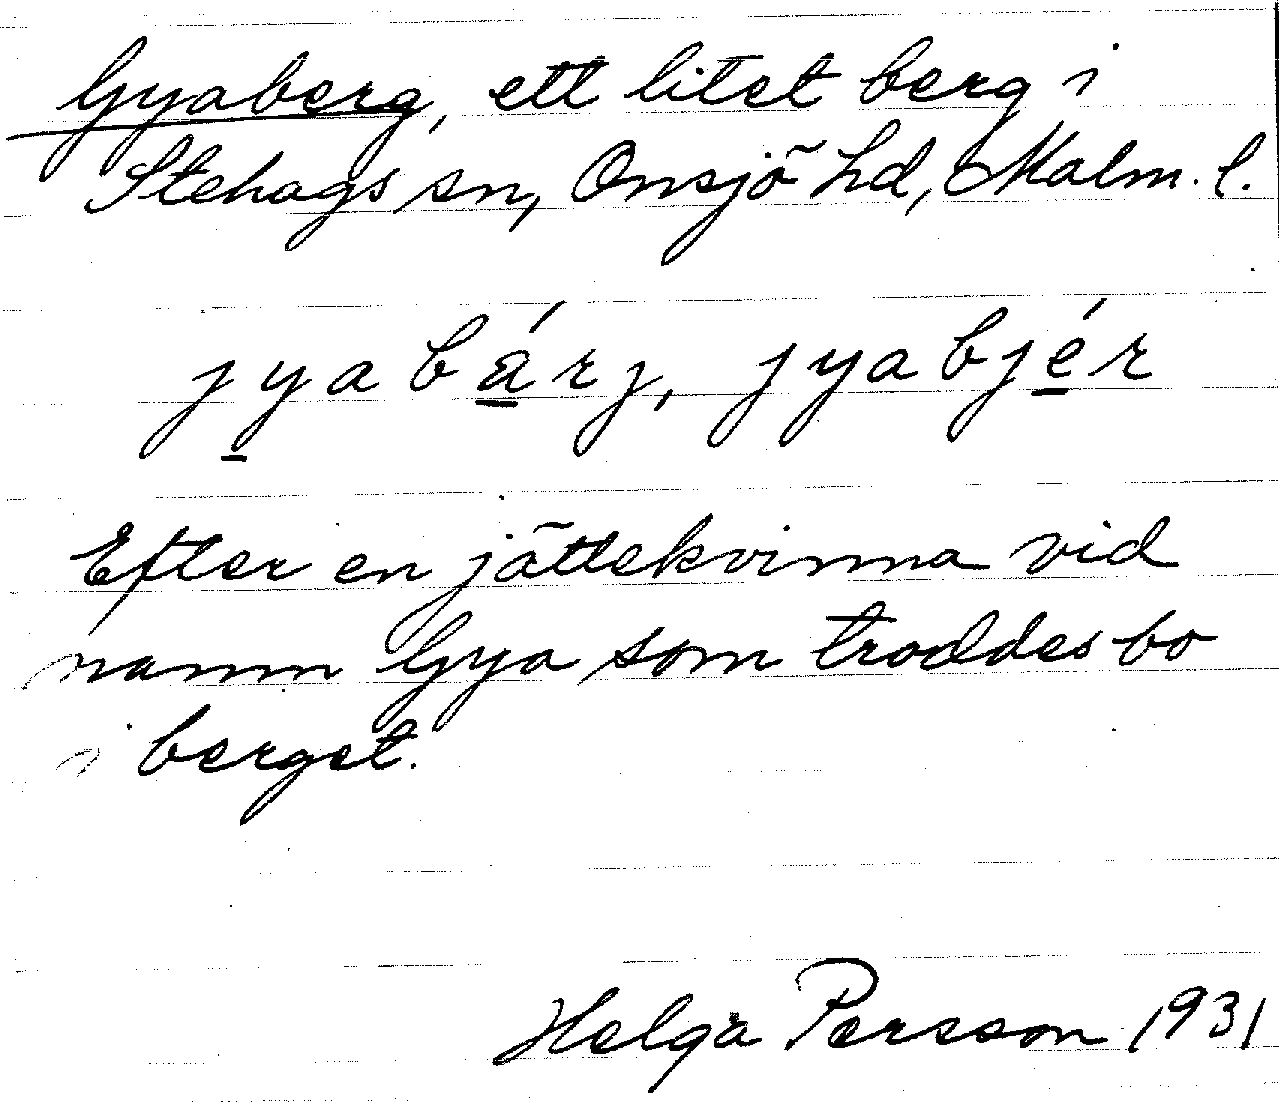 Gyaberg, ett litet berg i
Stehags sn, Onsjö hd, Malm. l.
jyabárj, jyabjér
Efter en jättekvinna vid
namn Gya som troddes bo
i berget.
Helga Persson 1931